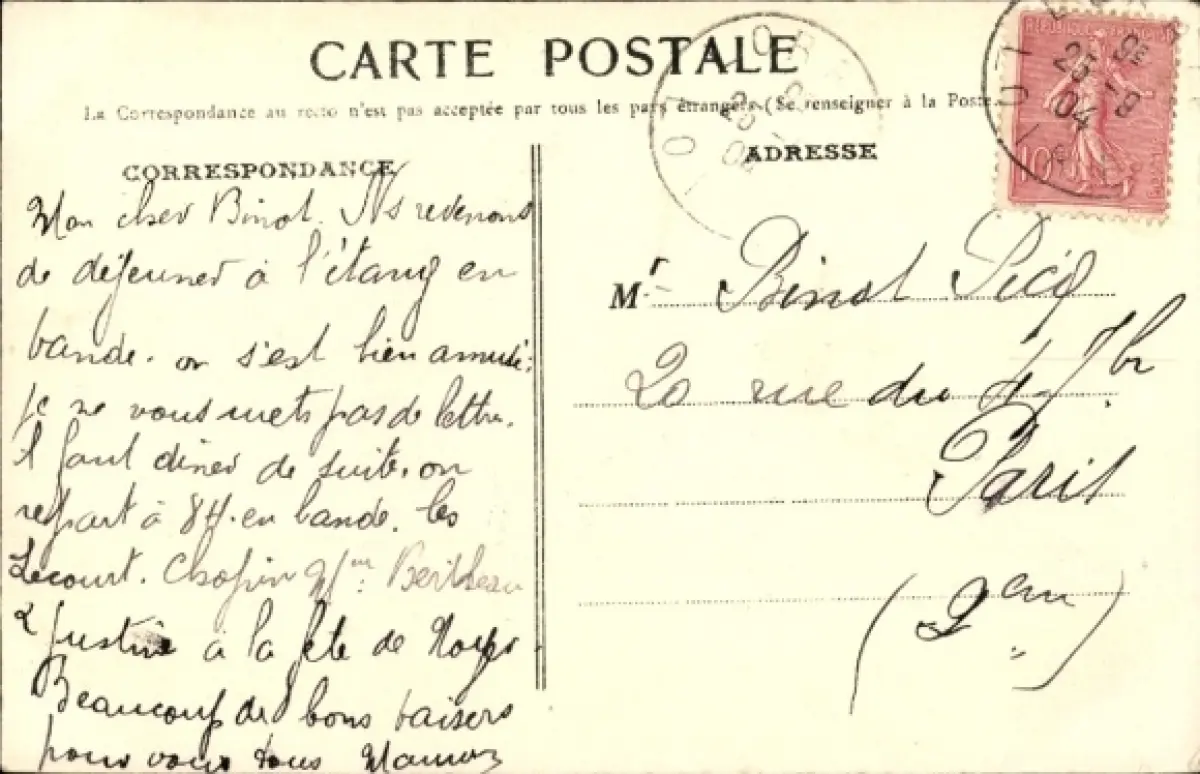 CARTE POSTALE
La Correspondance au recto n'est pas acceptée par tous les pays étrangers (Se renseigner à la Poste
CORRESPONDANCE
Mon cher Binot. Ns revenons
de déjeuner à l'étang en
bande. on s'est bien amusé.
je ne vous mets pas de lettre.
il faut diner de suite. on
repart à 8H. en bande. les
Lecourt. Chopin Mme Bertheau
& Justine à la fête de
Beaucoup de bons baisers
pour vous tous Maman
ADRESSE
Mr Binot Picq
20 rue du 4 7br
Paris
(2em)
RÉPUBLIQUE FRANÇAISE
10
25 -9
04